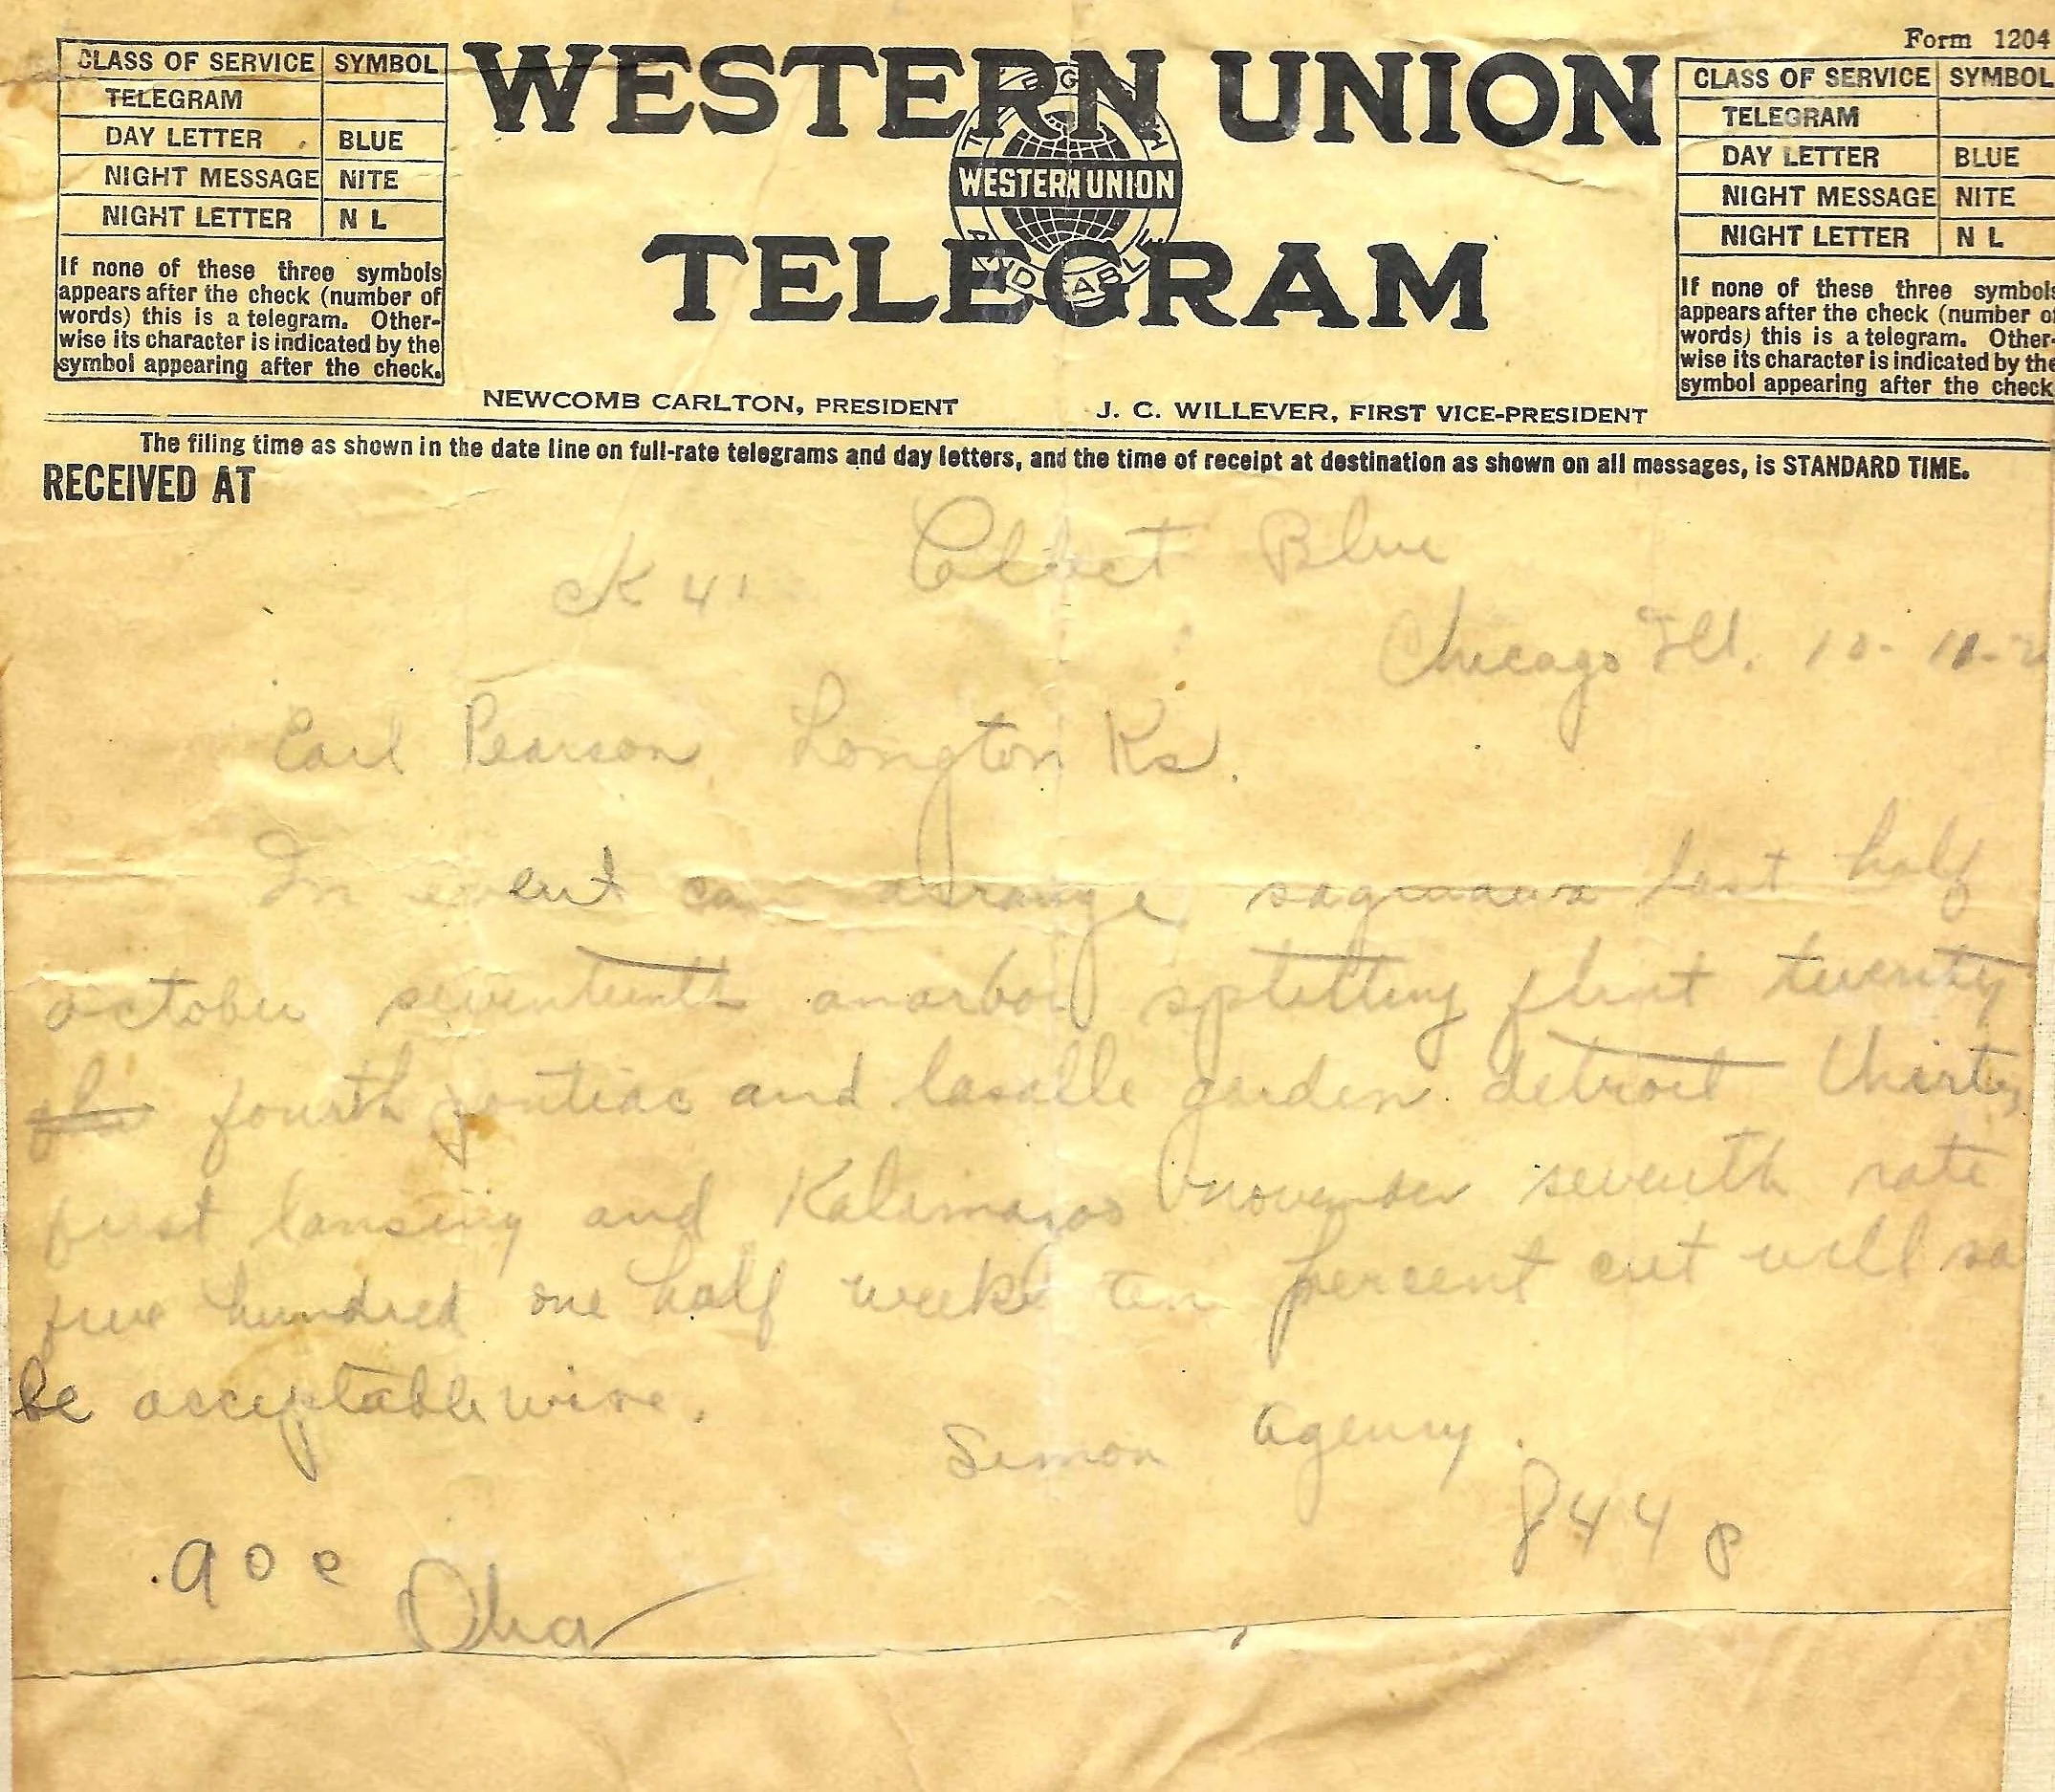 Form 1204
CLASS OF SERVICE SYMBOL
TELEGRAM
DAY LETTER BLUE
NIGHT MESSAGE NITE
NIGHT LETTER N L
If none of these three symbols
appears after the check (number of
words) this is a telegram. Other-
wise its character is indicated by the
symbol appearing after the check.
WESTERN UNION
TELEGRAPH
WESTERN UNION
AND CABLE
TELEGRAM
CLASS OF SERVICE SYMBOL
TELEGRAM
DAY LETTER BLUE
NIGHT MESSAGE NITE
NIGHT LETTER N L
If none of these three symbols
appears after the check (number of
words) this is a telegram. Other-
wise its character is indicated by the
symbol appearing after the check
NEWCOMB CARLTON, PRESIDENT J. C. WILLEVER, FIRST VICE-PRESIDENT
The filing time as shown in the date line on full-rate telegrams and day letters, and the time of receipt at destination as shown on all messages, is STANDARD TIME.
RECEIVED AT
CK 41 Collect Blue
Chicago Ill. 10-11-2
Earl Pearson Longton Ks.
In event can arrange saginaw last half
october seventeenth anarbor splitting flint twenty
fourth pontiac and lasalle garden detroit thirty
first lansing and Kalamazoo november seventh rate
five hundred one half weeks ten percent cut will sa
be acceptable wire.
Simon Agency.
844 P
.90 c